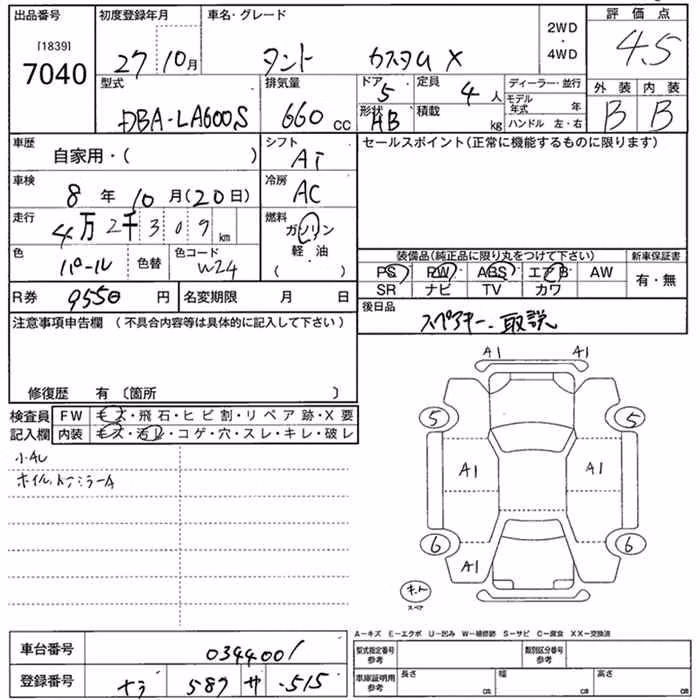 出品番号 初度登録年月 車名・グレード 2WD・4WD 評価点
[1839]
7040 27 10月 タント カスタム X 4.5
型式 排気量 ドア 5 定員 4人 ディーラー・並行 外装 内装
DBA-LA600S 660 cc 形状 HB 積載 kg モデル年式 年 B B
ハンドル 左・右
車歴 自家用・( ) シフト AT セールスポイント(正常に機能するものに限ります)
車検 8年10月(20日) 冷房 AC
走行 4万2千309km 燃料 ガソリン・軽油 ( )
色 パール 色替 色コード W24 装備品(純正品に限り丸をつけて下さい) 新車保証書
PS PW ABS エアB AW 有・無
SR ナビ TV カワ
R券 9550円 名変期限 月 日 後日品
スペアキー、取説
注意事項申告欄(不具合内容等は具体的に記入して下さい)
修復歴 有〔箇所 〕
検査員 FW キズ・飛石・ヒビ割・リペア跡・X要
記入欄 内装 キズ・汚レ・コゲ・穴・スレ・キレ・破レ
小AU
A1 A1
5 5
A1 A1
6 6
A1
スペア
A−キズ E−エクボ U−凹み W−補修跡 S−サビ C−腐食 XX−交換済
車台番号 0344001 型式指定番号 参考 類別区分番号 参考
登録番号 ナラ 587 サ ・515 車庫証明用 参考 長さ cm 幅 cm 高さ cm